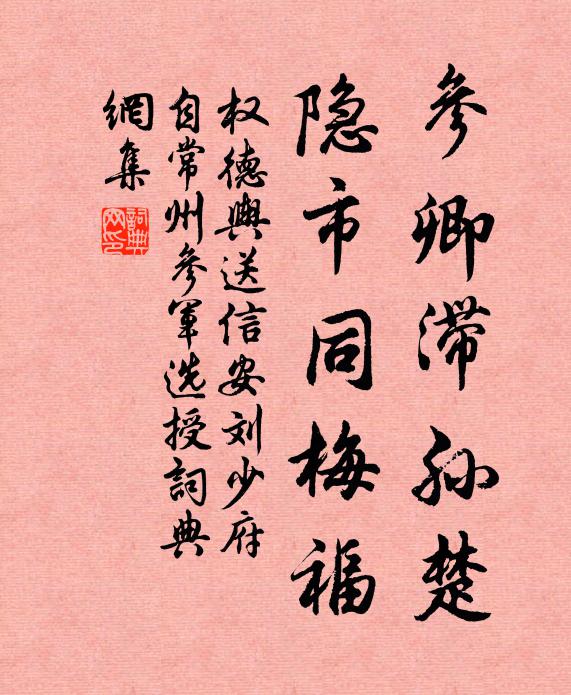 参卿滞孙楚
隐市同梅福
权德舆送信安刘少府
自常州参军选授词典
网集
词典网印